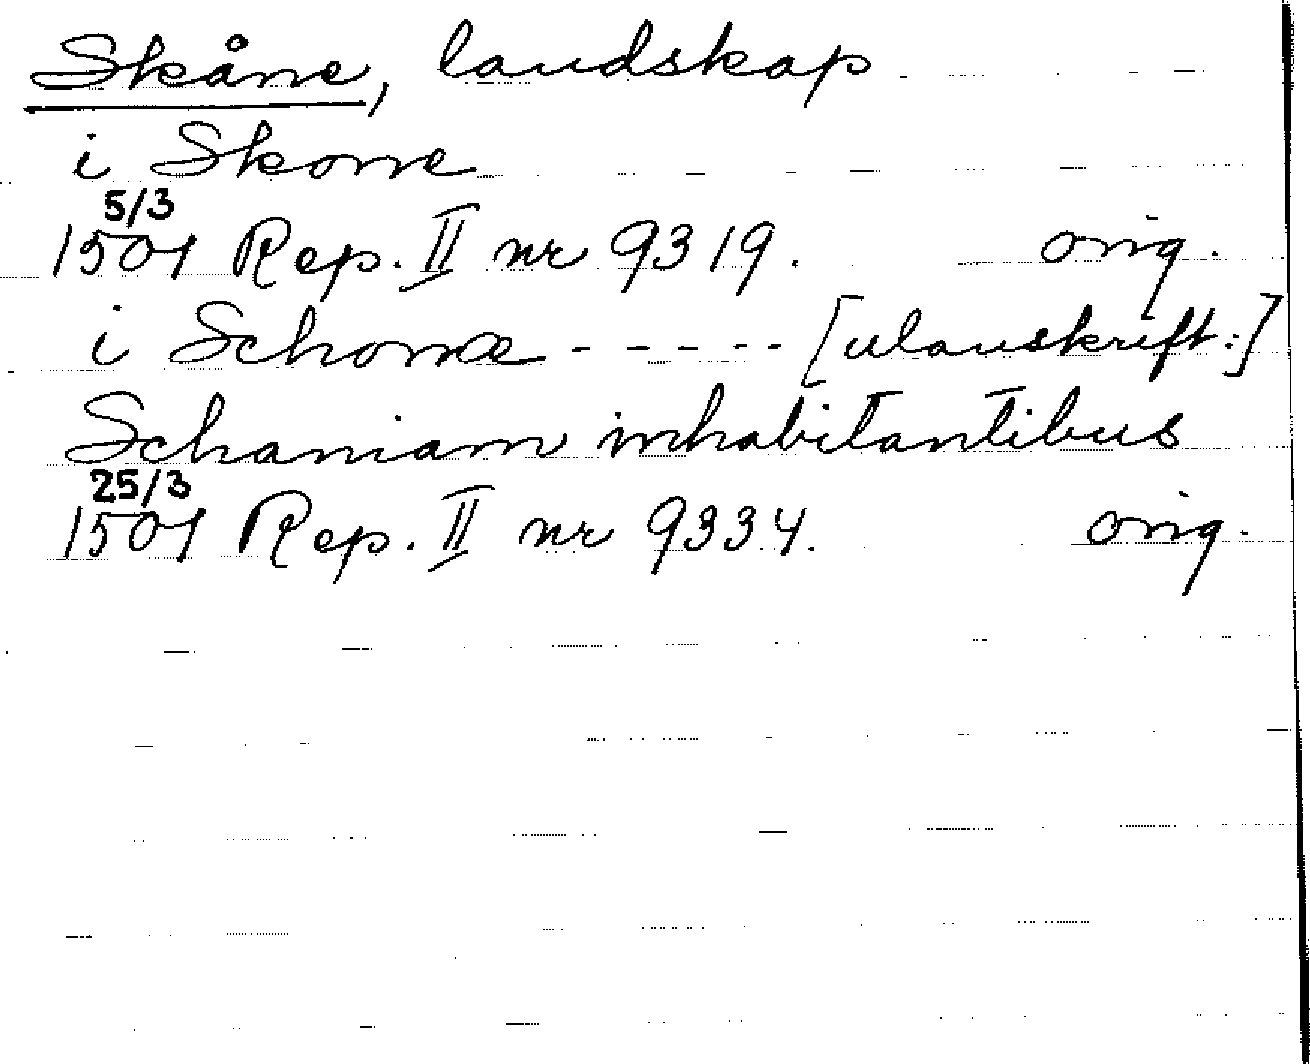 Skåne, landskap
i Skone
5/3
1501 Rep. II nr 9319. orig.
i Schonæ - - - - - [utanskrift:]
Schaniam inhabitantibus
25/3
1501 Rep. II nr 9334. orig.